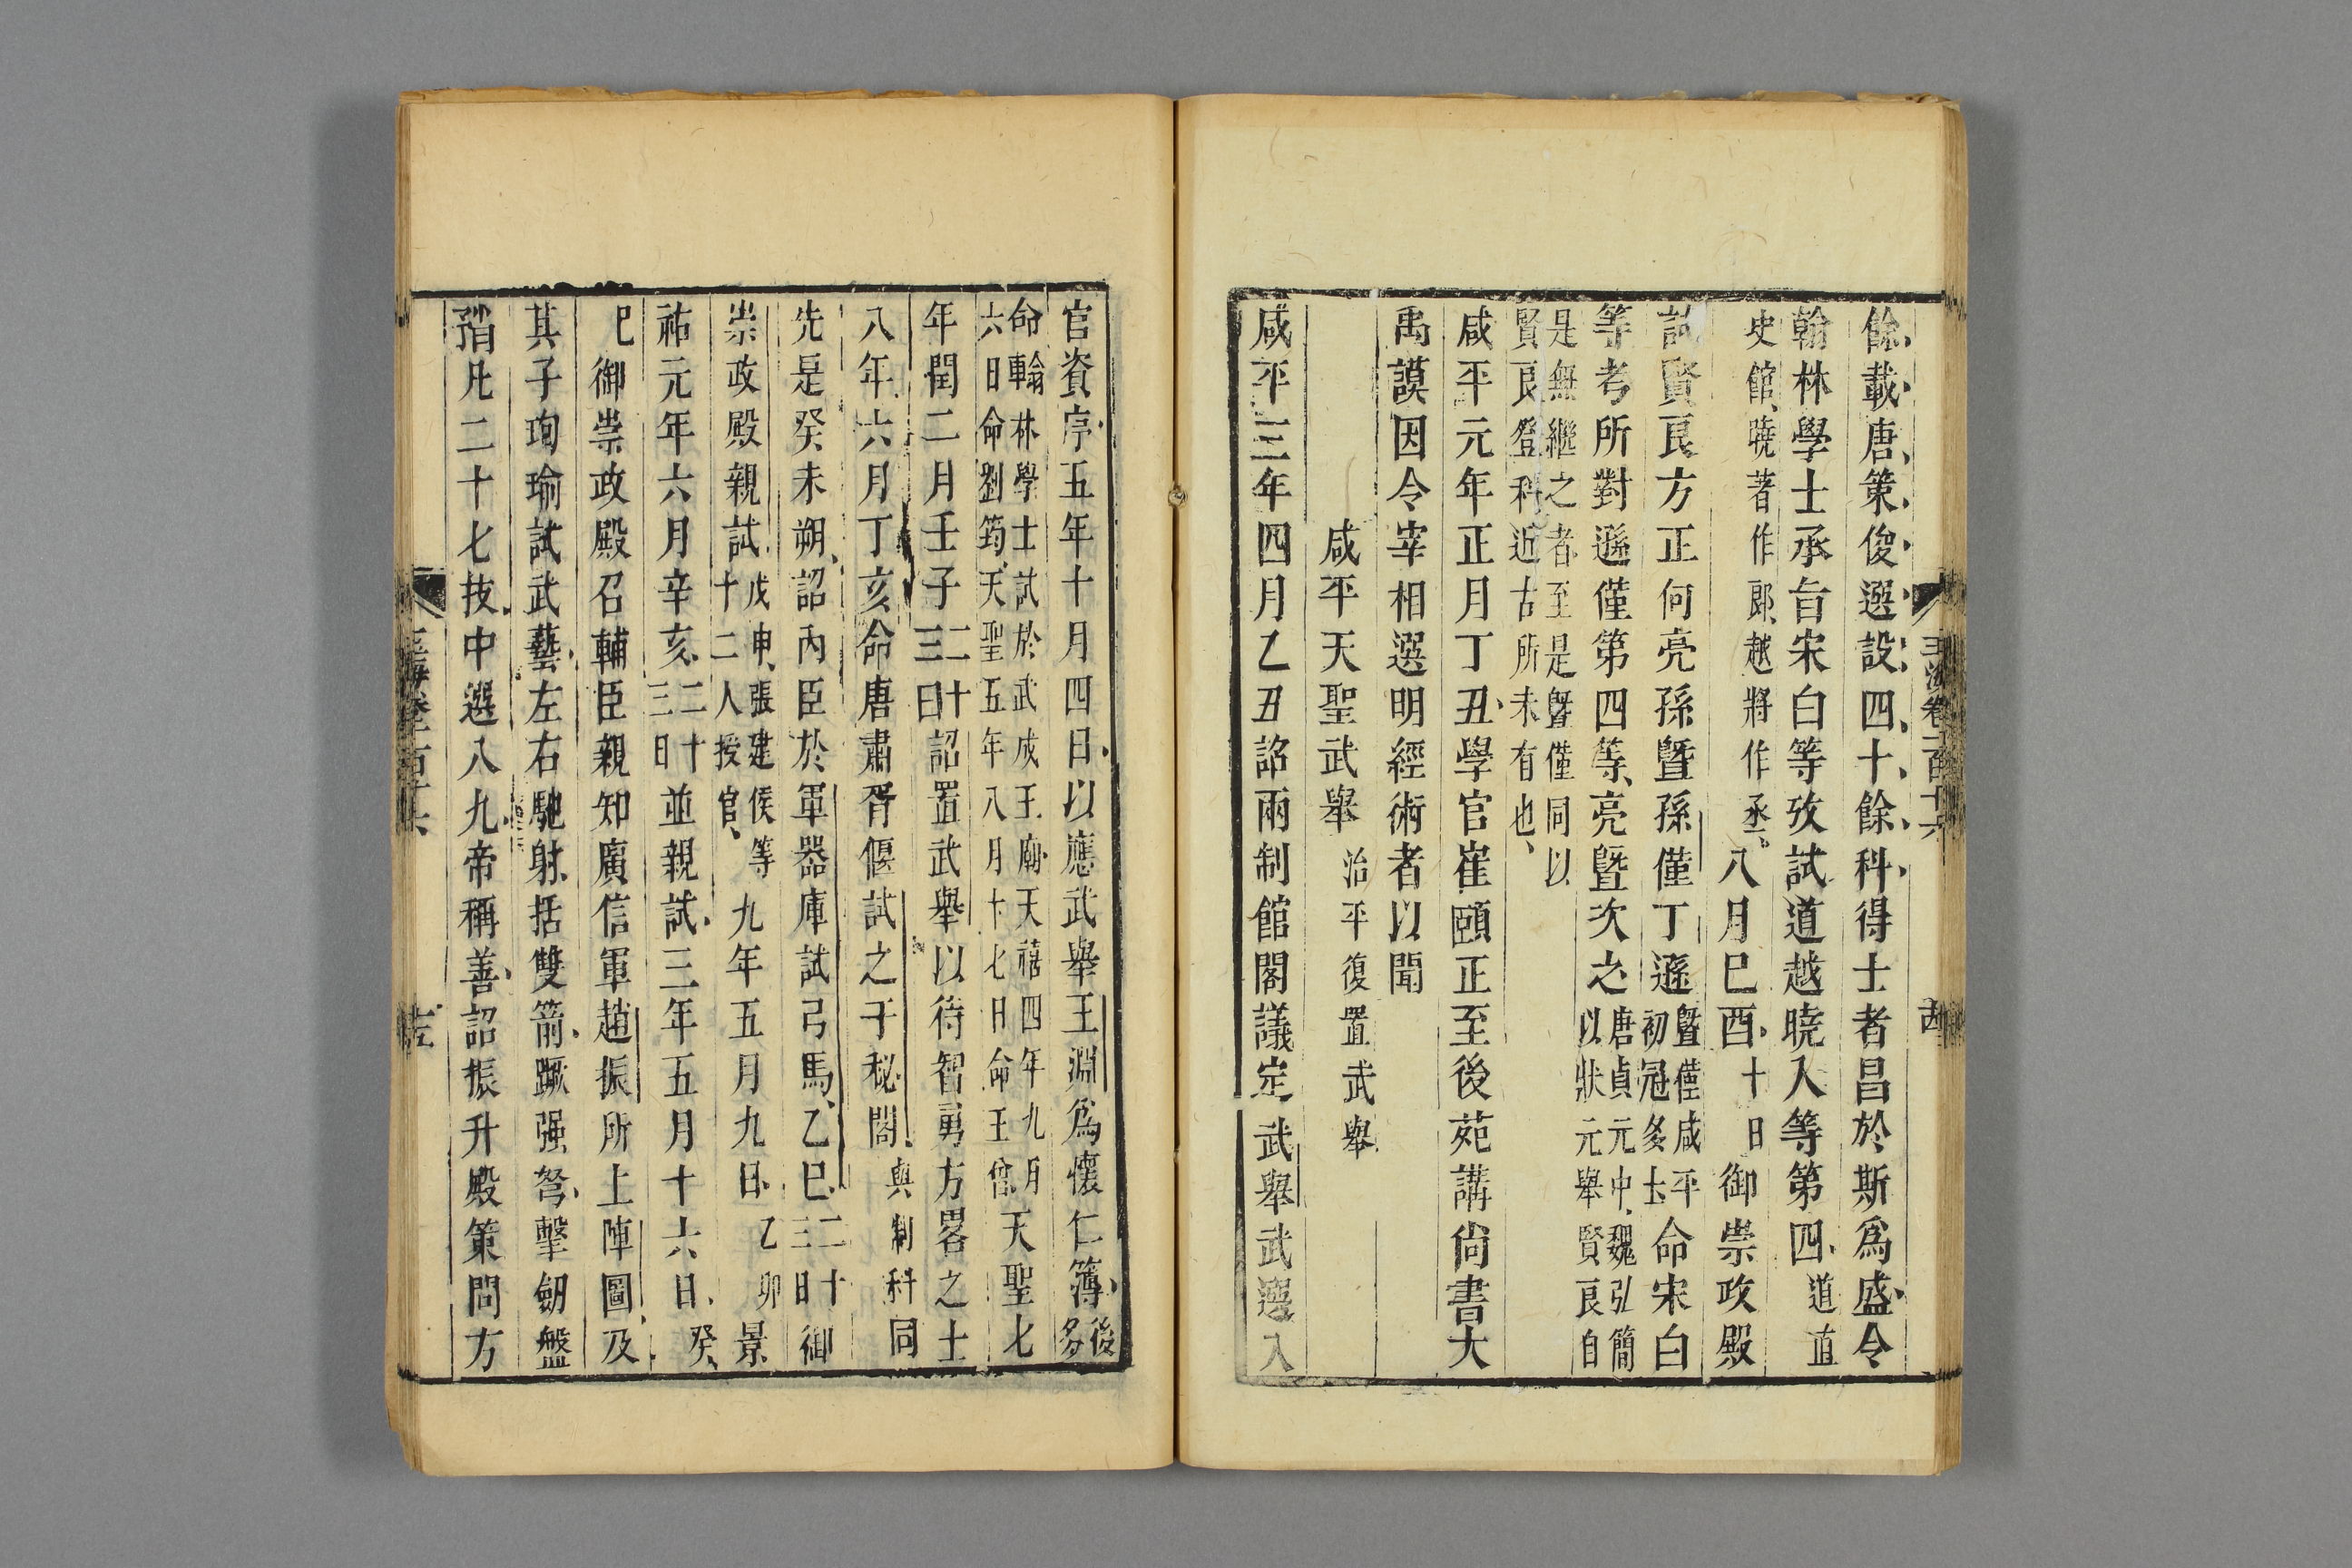 玉海卷一百十六
餘載唐策俊選設四十餘科得士者昌於斯爲盛令
翰林學士承旨宋白等攷試道越曉入等第四道直
史館曉著作郎越將作丞八月巳酉十日御崇政殿
試賢良方正何亮孫曁孫僅丁遜曁僅咸平初冠多士命宋白
等考所對遜僅第四等亮曁次之唐貞元中魏弘簡以狀元舉賢良自
是無繼之者至是曁僅同以賢良登科近古所未有也
咸平元年正月丁丑學官崔頤正至後苑講尚書大
禹謨因令宰相選明經術者以聞
咸平天聖武舉治平復置武舉
咸平三年四月乙丑詔兩制館閣議定武舉武選入
官資序五年十月四日以應武舉王淵爲懷仁簿後多
命翰林學士試於武成王廟天禧四年九月六日命劉筠天聖五年八月十七日命王曾天聖七
年閏二月壬子二十三日詔置武舉以待智勇方畧之士
八年六月丁亥命唐肅胥偃試之于秘閣與制科同
先是癸未朔詔內臣於軍器庫試弓馬乙巳二十三日御
崇政殿親試戊申張建侯等十二人授官九年五月九日乙卯景
祐元年六月辛亥二十三日並親試三年五月十六日癸
巳御崇政殿召輔臣親知廣信軍趙振所上陣圖及
其子珣瑜試武藝左右馳射括雙箭蹶强弩擊劒盤
矟凡二十七技中選八九帝稱善詔振升殿策問方